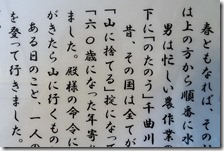 春ともなれば、その
は上の方から順番に水
男は忙しい農作業の
下に「のたのう」千曲川
昔、その国は全てが
「山に捨てる」掟になって
「六〇歳になった年寄り
ました。殿様の命令に
がきたら山に行くもの
ある日のこと、一人の
を登って行きました。